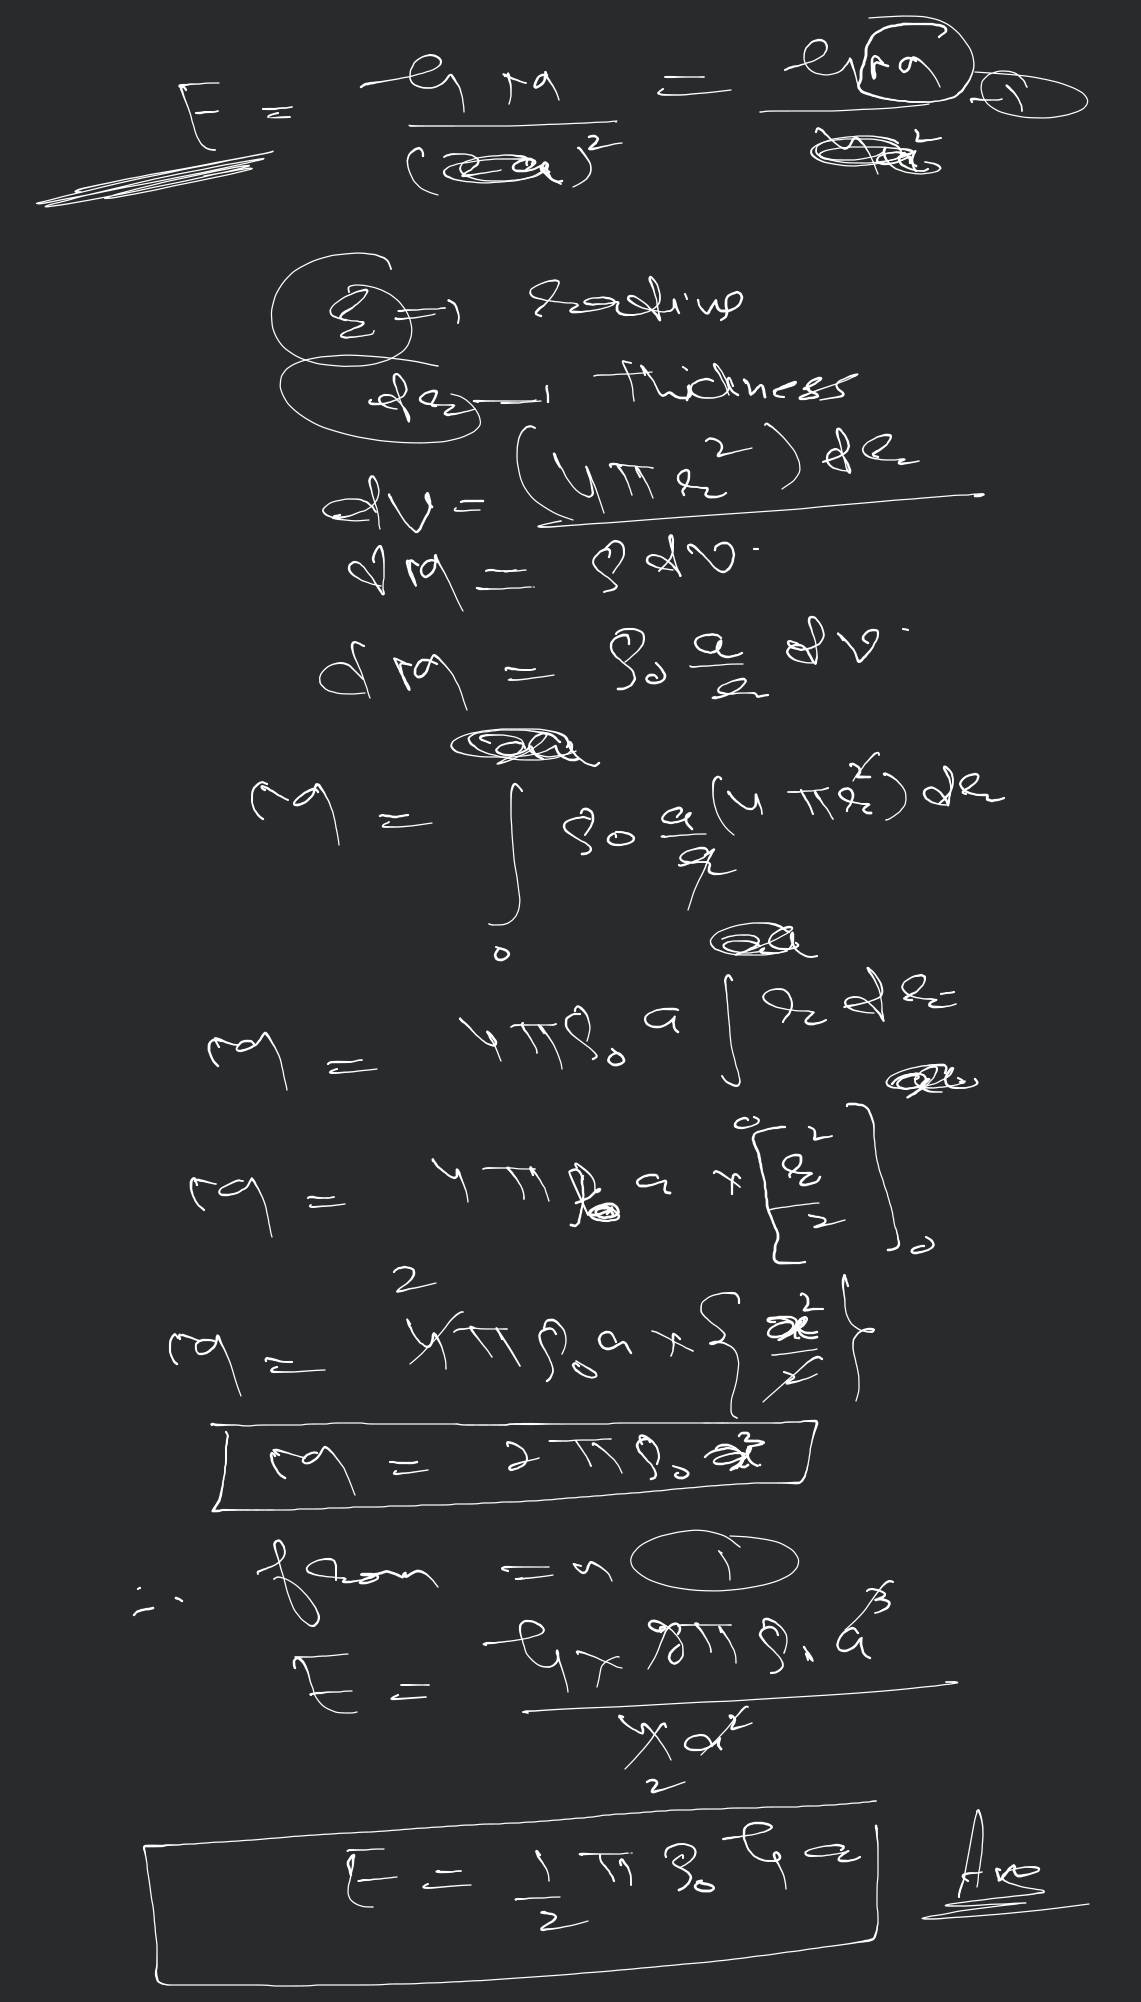 E = GM/(2a)² = GM/4a² -①
r → radius
dr → thickness
dV = (4πr²) dr
dM = ρ dV.
dM = ρ₀ a/r dV.
M = ∫₀ ρ₀ a/r (4πr²) dr
M = 4πρ₀ a ∫₀ r dr
M = 4πρ₀ a × [r²/2]₀
2
M = 4πρ₀ a × {a²/2}
M = 2πρ₀
∴ from =n ①
E = G × 2πρ₀ a³ / 4 a²
2
E = 1/2 π ρ₀ G a Ans